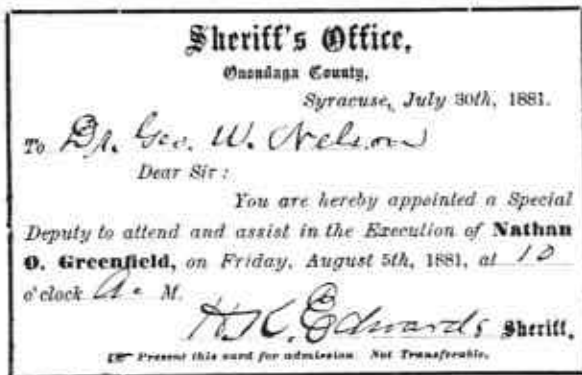 Sheriff's Office,
Onondaga County,
Syracuse, July 30th, 1881.
To Dr. Geo. W. Nelson
Dear Sir:
You are hereby appointed a Special
Deputy to attend and assist in the Execution of Nathan
O. Greenfield, on Friday, August 5th, 1881, at 10
o'clock A. M.
H. K. Edwards Sheriff.
☞ Present this card for admission. Not Transferable.